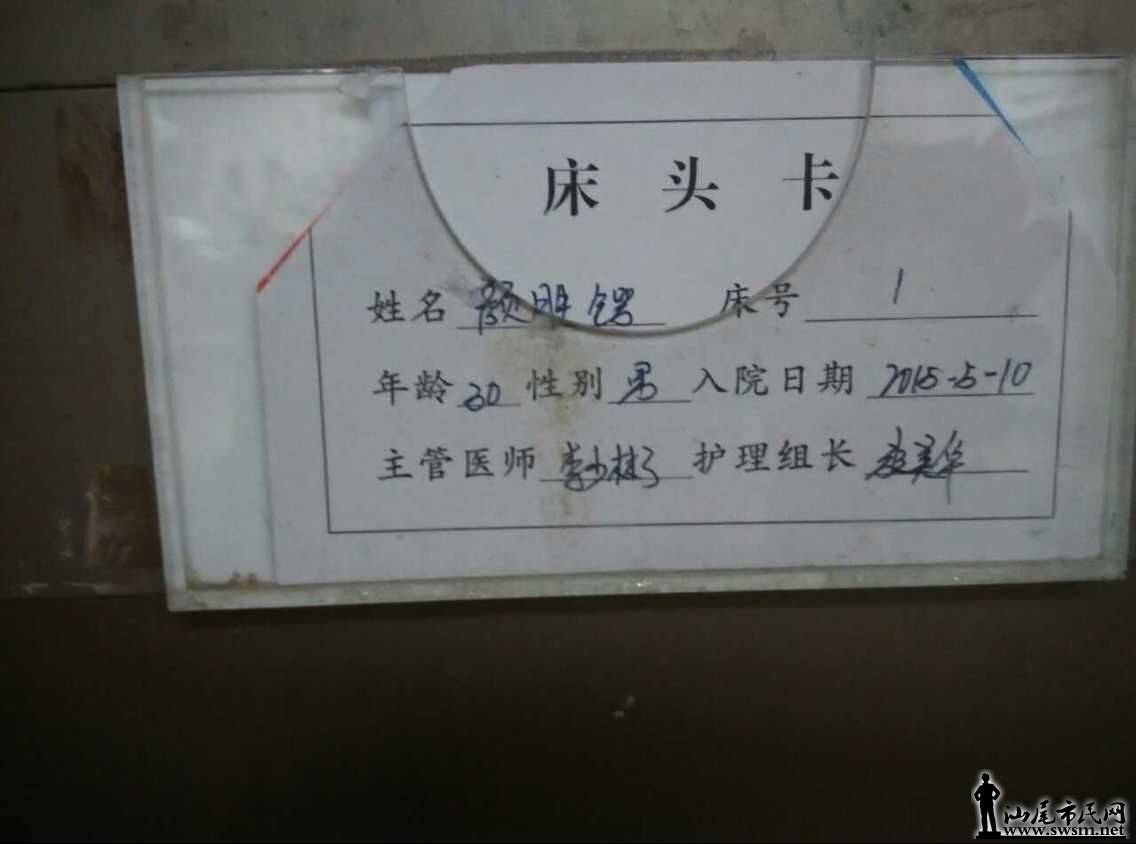 床头卡
姓名 颜明锷 床号 1
年龄 30 性别 男 入院日期 2015-5-10
主管医师 李少彬 护理组长 美华
汕尾市民网
www.swsm.net